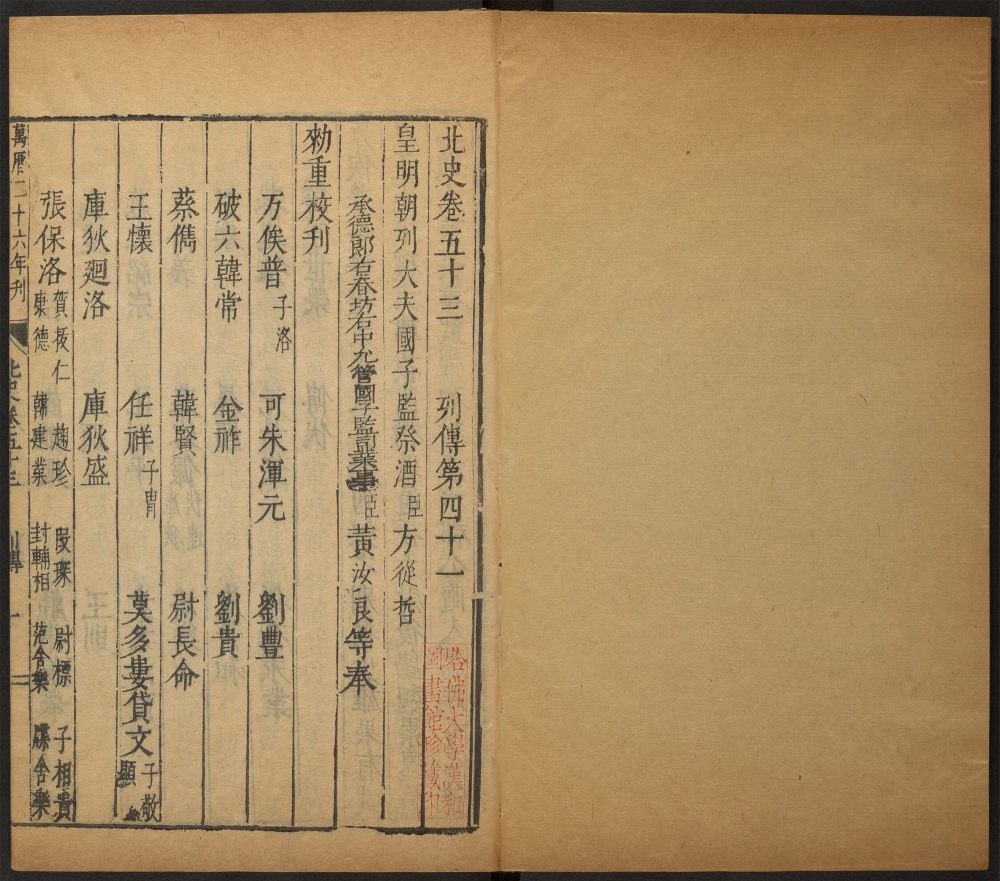 北史卷五十三 列傳第四十一
皇明朝列大夫國子監祭酒臣方從哲
承德郎右春坊右中允管國子監司業事臣黃汝良等奉
勑重校刊
万俟普子洛 可朱渾元 劉豐
破六韓常 金祚 劉貴
蔡儁 韓賢 尉長命
王懷 任祥子胄 莫多婁貸文子敬顯
庫狄廻洛 庫狄盛
張保洛賀拔仁 麹珍 段琛 尉標 子相貴
康德 韓建業 封輔相 范舍樂 牒舍樂
萬曆二十六年刊 北史卷五十三 列傳 一
哈佛大學漢和
圖書館珍藏印